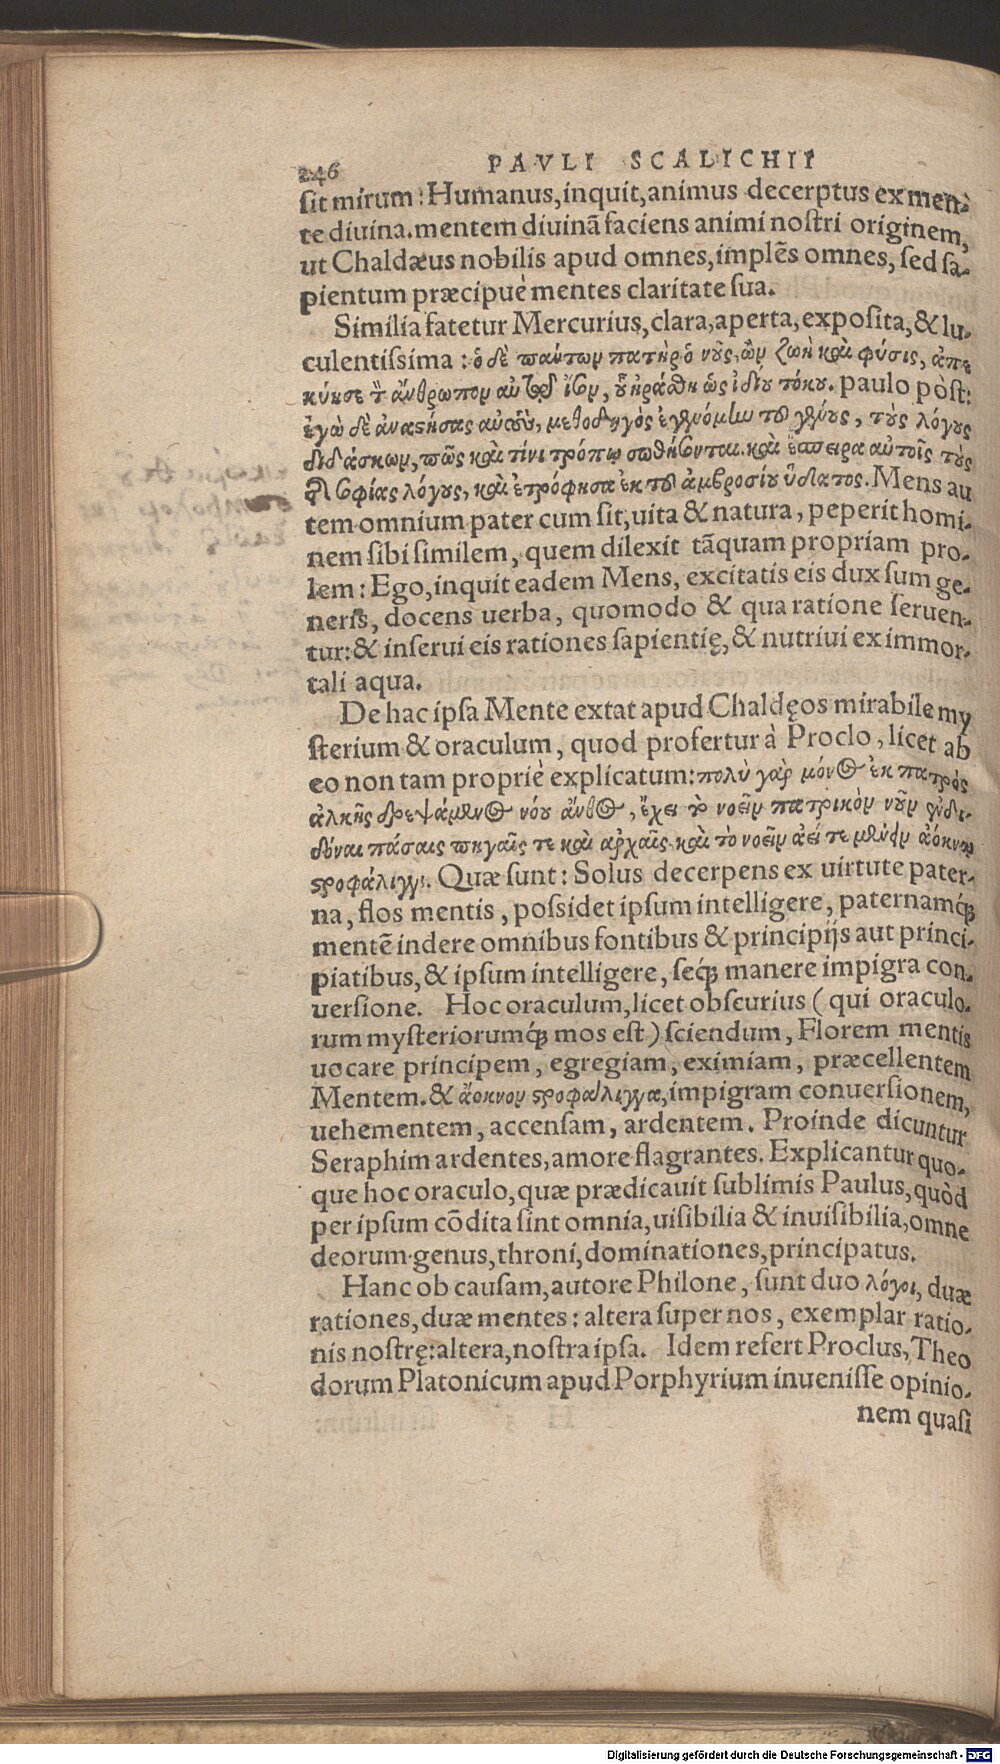 246 PAVLI SCALICHII
sit mirum: Humanus, inquit, animus decerptus ex men-
te diuina. mentem diuinã faciens animi nostri originem,
ut Chaldæus nobilis apud omnes, implẽs omnes, sed sa-
pientum præcipuè mentes claritate sua.
Similia fatetur Mercurius, clara, aperta, exposita, & lu-
culentissima: ὁ δὲ πάντων πατὴρ ὁ νοῦς, ὢν ζωὴ καὶ φύσις, ἀπε
κύησε τ ἄνθρωπον αὐτῷ ἴσον, οὗ ἠράσθη ὡς ἰδίου τόκου. paulo pòst:
ἐγὼ δὲ ἀναστήσας αὐτοὺς, μεθοδηγὸς ἐγενόμην τοῦ γένους, τοὺς λόγους
διδάσκων, πῶς καὶ τίνι τρόπῳ σωθήσονται. καὶ ἔσπειρα αὐτοῖς τοὺς
τῆς σοφίας λόγους, καὶ ἐτρόφησα ἐκ τοῦ ἀμβροσίου ὕδατος. Mens au
tem omnium pater cum sit, uita & natura, peperit homi-
nem sibi similem, quem dilexit tãquam propriam pro-
lem: Ego, inquit eadem Mens, excitatis eis dux sum ge-
neris, docens uerba, quomodo & qua ratione seruen-
tur: & inserui eis rationes sapientię, & nutriui ex immor-
tali aqua.
De hac ipsa Mente extat apud Chaldęos mirabile my
sterium & oraculum, quod profertur à Proclo, licet ab
eo non tam propriè explicatum: πολὺ γὰρ μόνος ἐκ πατρός
ἀλκῆς δρεψάμενος νόου ἄνθος, ἔχει τὸ νοεῖν πατρικὸν νοῦν ἐνδι-
δόναι πάσαις πηγαῖς τε καὶ αρχαῖς. καὶ τὸ νοεῖν ἀεί τε μένειν ἀόκνῳ
στροφάλιγγι. Quæ sunt: Solus decerpens ex uirtute pater-
na, flos mentis, possidet ipsum intelligere, paternamq́;
mentẽ indere omnibus fontibus & principijs aut princi-
piatibus, & ipsum intelligere, seq́; manere impigra con-
uersione. Hoc oraculum, licet obscurius (qui oraculo-
rum mysteriorumq́; mos est) sciendum, Florem mentis
uocare principem, egregiam, eximiam, præcellentem
Mentem. & ἄοκνον στροφάλιγγα, impigram conuersionem,
uehementem, accensam, ardentem. Proinde dicuntur
Seraphim ardentes, amore flagrantes. Explicantur quo-
que hoc oraculo, quæ prædicauit sublimis Paulus, quòd
per ipsum cõdita sint omnia, uisibilia & inuisibilia, omne
deorum genus, throni, dominationes, principatus.
Hanc ob causam, autore Philone, sunt duo λόγοι, duæ
rationes, duæ mentes: altera super nos, exemplar ratio-
nis nostrę: altera, nostra ipsa. Idem refert Proclus, Theo
dorum Platonicum apud Porphyrium inuenisse opinio-
nem quasi
Digitalisierung gefördert durch die Deutsche Forschungsgemeinschaft - DFG